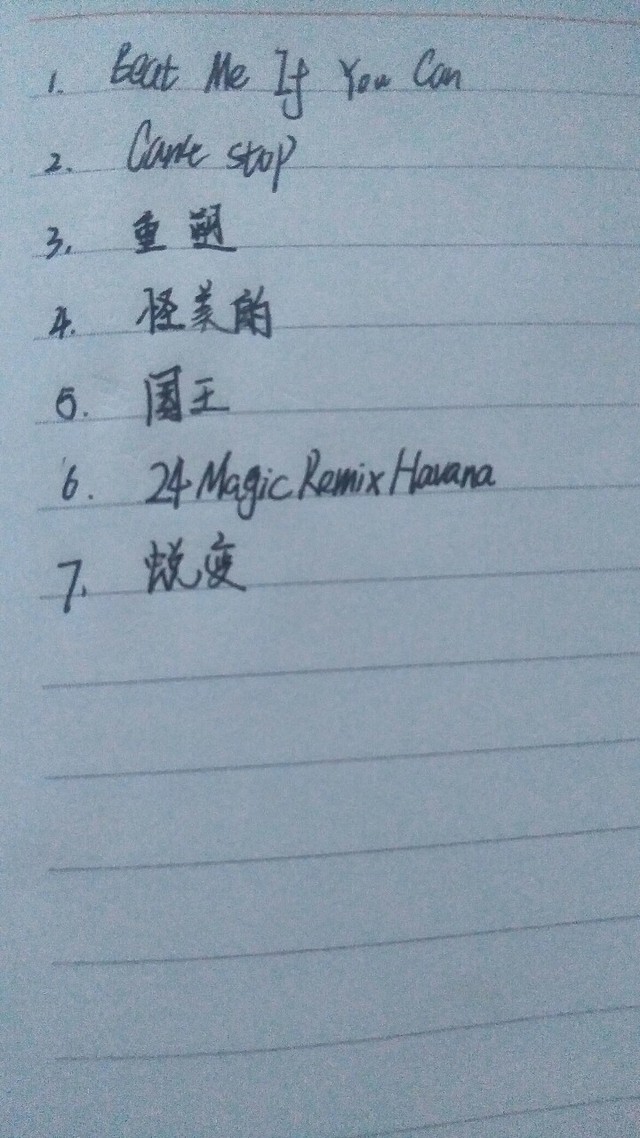 1. Beat Me If You Can
2. Can't stop
3. 重塑
4. 怪美的
5. 国王
6. 24 Magic Remix Havana
7. 蜕变